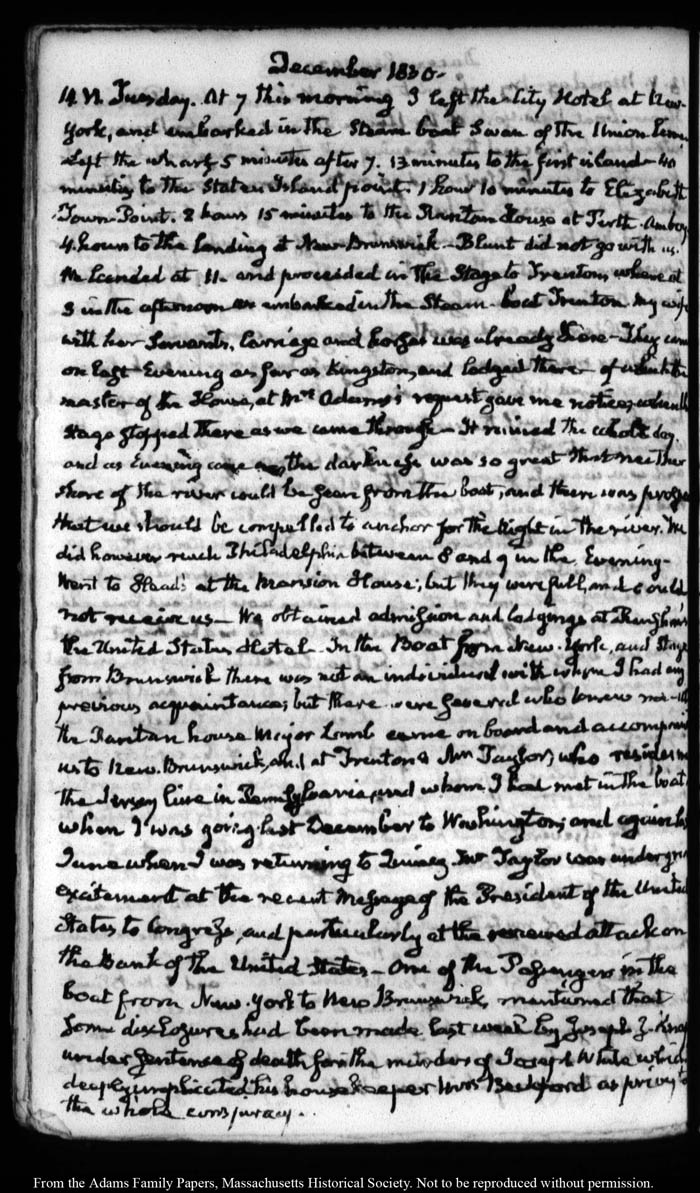 December 1830.
14. VI. Tuesday. At 7 this morning I left the City Hotel at New-
York, and embarked in the Steam boat Swan of the Union Line.
Left the wharf 5 minutes after 7. 13 minutes to the first island— 40
minutes to the Staten Island point. 1 hour 10 minutes to Elizabeth
Town-Point. 2 hours 15 minutes to the Raritan House at Perth-Amboy
4. hours to the landing at New-Brunswick— Blunt did not go with us.
We landed at 11. and proceeded in the Stage to Trenton, where at
3 in the afternoon we embarked in the Steam-boat Trenton. My wife
with her Servants, Carriage and horses was already there— They came
on last Evening as far as Kingston, and lodged there— of which the
master of the House, at Mrs Adams's request gave me notice, when the
Stage stopped there as we came through— It rained the whole day.
and as Evening came on, the darkness was so great that neither
shore of the river could be seen from the boat, and there was
that we should be compelled to anchor for the Night in the river. We
did however reach Philadelphia between 8 and 9 in the Evening—
Went to Head's at the Mansion House; but they were full, and could
not receive us— We obtained admission and lodgings at
the United States Hotel. In the Boat from New-York, and Stage
from Brunswick there was not an individual with whom I had any
previous acquaintance; but there were several who knew me— At
the Raritan house Major Lomb came on board and accompanied
us to New-Brunswick, and at Trenton Mr Taylor, who resides
the Jersey line in Pennsylvania, and whom I had met in the boat
when I was going last December to Washington; and again last
June when I was returning to Quincy. Mr Taylor was under great
excitement at the recent Message of the President of the United
States to Congress, and particularly at the renewed attack on
the Bank of the United States— One of the Passengers in the
boat from New-York to New Brunswick, mentioned that
some disclosures had been made last week by Joseph J. Knapp
under Sentence of death for the murder of Joseph White which
deeply implicated his housekeeper Mrs Beckford as privy to
the whole conspiracy.
From the Adams Family Papers, Massachusetts Historical Society. Not to be reproduced without permission.